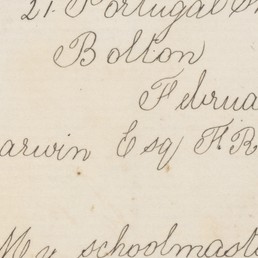 21 Portugal St
Bolton
Februa
arwin Esq F.R
My schoolmaste